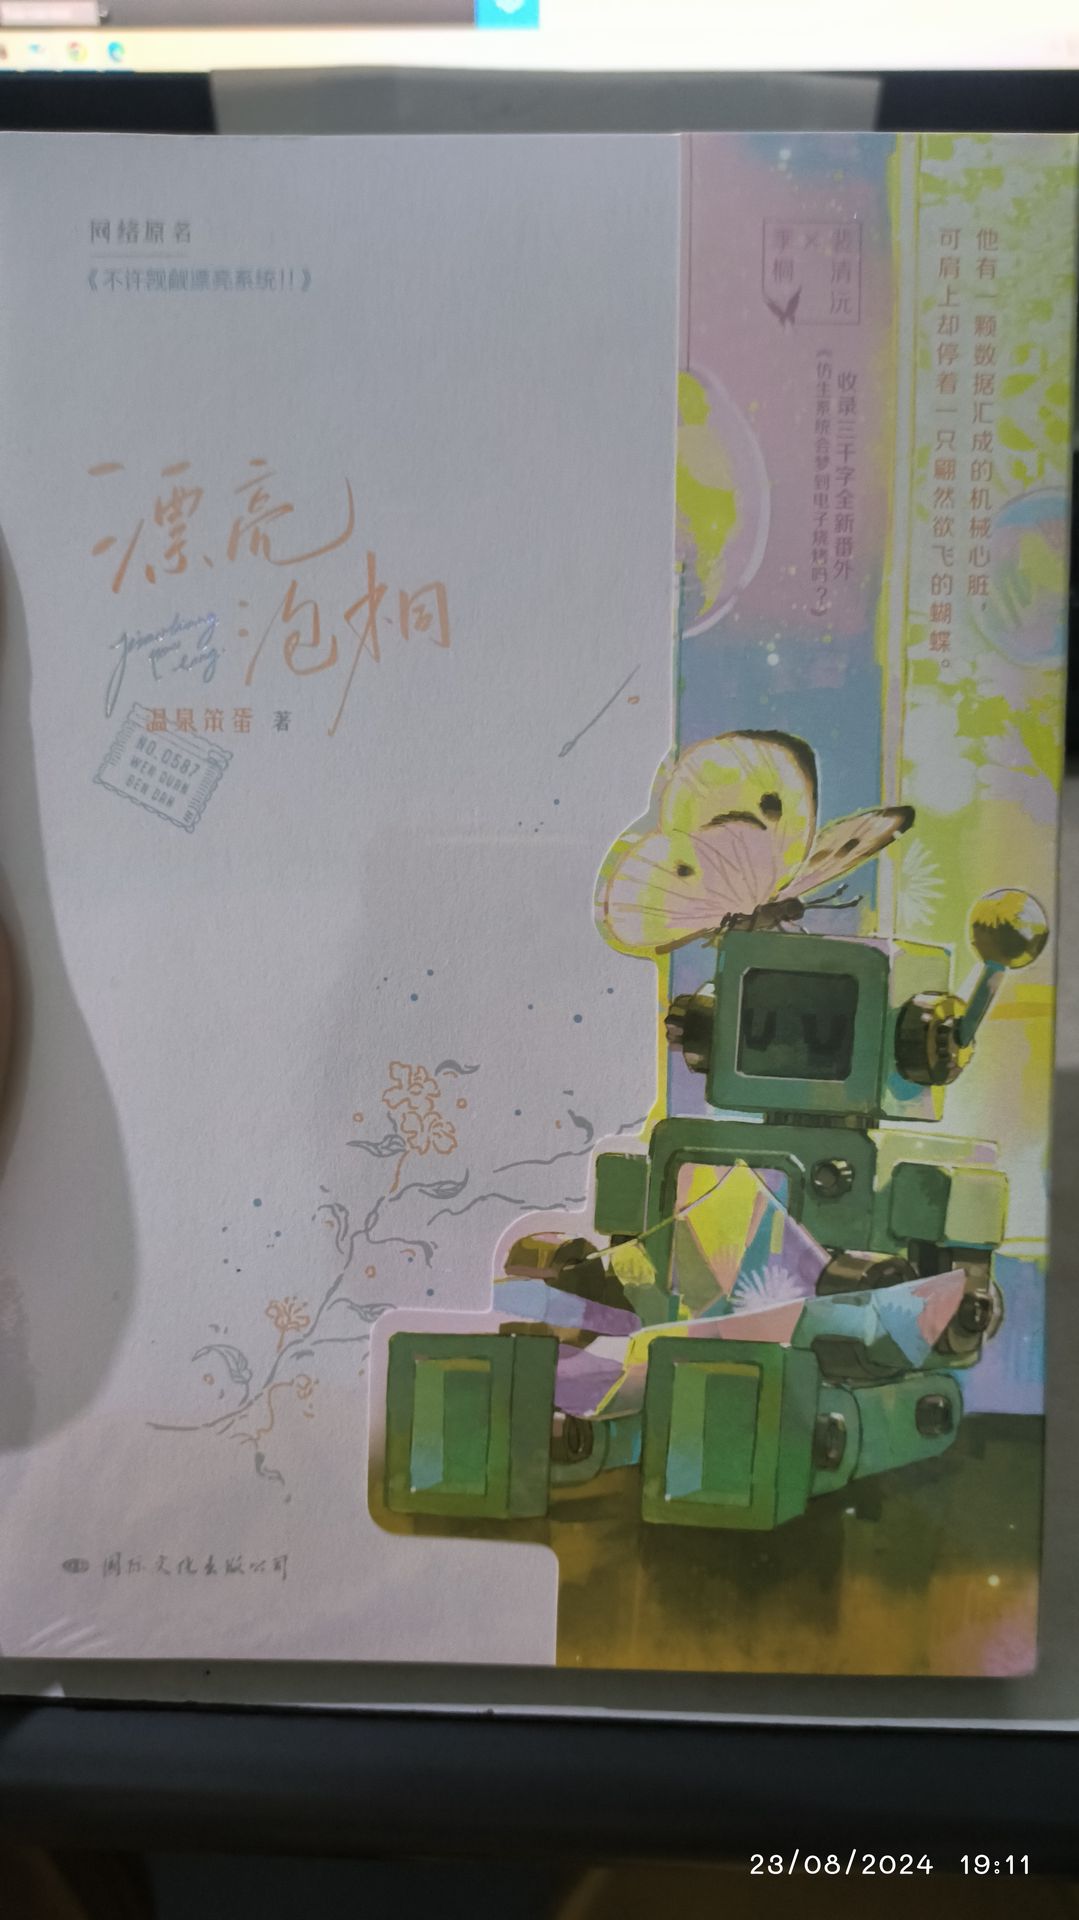 网络原名
《不许觊觎漂亮系统!!》
漂亮
泡桐
温泉笨蛋 著
NO.0587
WEN QUAN
BEN DAN
国际文化出版公司
季桐
×
裴清沅
收录三千字全新番外
《仿生系统会梦到电子烧烤吗?》
他有一颗数据汇成的机械心脏,
可肩上却停着一只翩然欲飞的蝴蝶。
23/08/2024 19:11